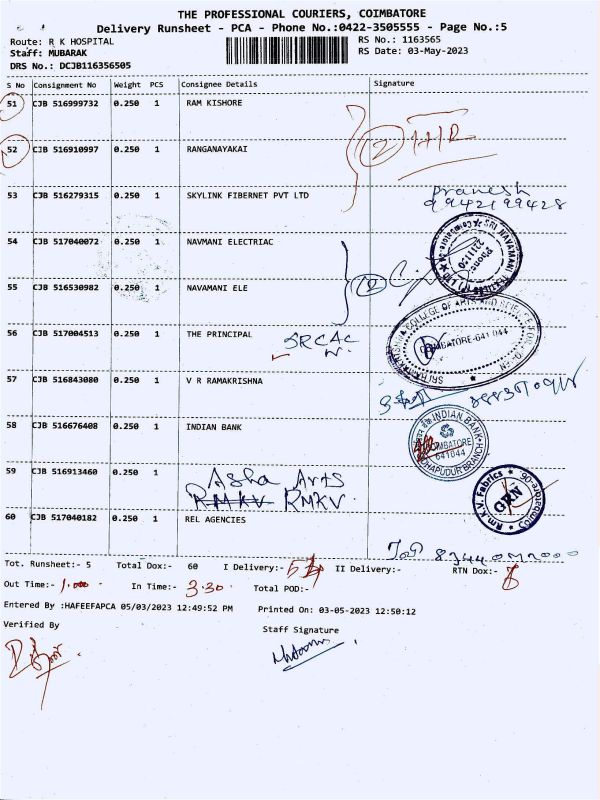 THE PROFESSIONAL COURIERS, COIMBATORE
Delivery Runsheet - PCA - Phone No.:0422-3505555 - Page No.:5
Route: R K HOSPITAL
RS No.: 1163565
Staff: MUBARAK
RS Date: 03-May-2023
DRS No.: DCJB116356505
S No Consignment No Weight PCS Consignee Details Signature
51 CJB 516999732 0.250 1 RAM KISHORE
52 CJB 516910997 0.250 1 RANGANAYAKAI
53 CJB 516279315 0.250 1 SKYLINK FIBERNET PVT LTD
Pranesh
9942199428
54 CJB 517040072 0.250 1 NAVMANI ELECTRIAC
55 CJB 516530982 0.250 1 NAVAMANI ELE
56 CJB 517004513 0.250 1 THE PRINCIPAL SRCAC
COIMBATORE-641 044
57 CJB 516843080 0.250 1 V R RAMAKRISHNA
58 CJB 516676408 0.250 1 INDIAN BANK
INDIAN BANK
COIMBATORE
641044
59 CJB 516913460 0.250 1 Asha Arts
RMKV RMKV
Rm.K.V. Fabrics
GRN
60 CJB 517040182 0.250 1 REL AGENCIES
Tot. Runsheet:- 5 Total Dox:- 60 I Delivery:- II Delivery:- RTN Dox:- 8
Out Time:- In Time:- 3.30 Total POD:-
Entered By :HAFEEFAPCA 05/03/2023 12:49:52 PM Printed On: 03-05-2023 12:50:12
Verified By Staff Signature